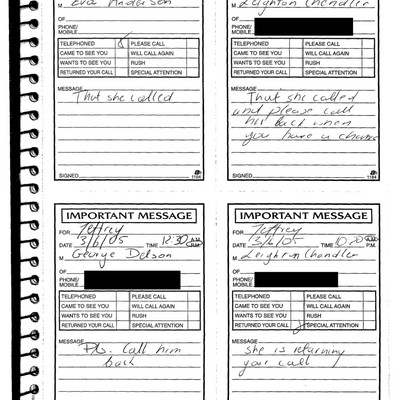 M Eva Anderson
OF
PHONE/
MOBILE
TELEPHONED PLEASE CALL
CAME TO SEE YOU WILL CALL AGAIN
WANTS TO SEE YOU RUSH
RETURNED YOUR CALL SPECIAL ATTENTION
MESSAGE
That she called
SIGNED
1184
M Leighton Chandler
OF
PHONE/
MOBILE
TELEPHONED PLEASE CALL
CAME TO SEE YOU WILL CALL AGAIN
WANTS TO SEE YOU RUSH
RETURNED YOUR CALL SPECIAL ATTENTION
MESSAGE That she called
and please call
her back when
you have a chance
SIGNED
1184
IMPORTANT MESSAGE
FOR Jeffrey
DATE 3/6/05 TIME 12:30 A.M. P.M.
M George Delson
OF
PHONE/
MOBILE
TELEPHONED PLEASE CALL
CAME TO SEE YOU WILL CALL AGAIN
WANTS TO SEE YOU RUSH
RETURNED YOUR CALL SPECIAL ATTENTION
MESSAGE Pls. call him
back
IMPORTANT MESSAGE
FOR Jeffrey
DATE 3/6/05 TIME A.M. P.M.
M Leighton Chandler
OF
PHONE/
MOBILE
TELEPHONED PLEASE CALL
CAME TO SEE YOU WILL CALL AGAIN
WANTS TO SEE YOU RUSH
RETURNED YOUR CALL SPECIAL ATTENTION
MESSAGE she is returning
your call